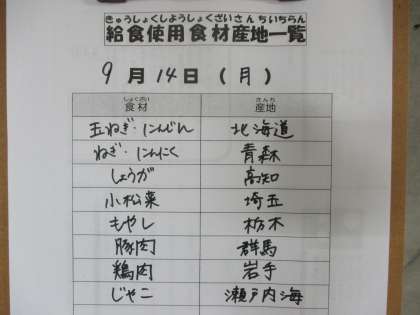 きゅうしょくしようしょくざいさんちいちらん
給食使用食材産地一覧
9月14日(月)
しょくざい さんち
食材 産地
玉ねぎ・にんじん 北海道
ねぎ・にんにく 青森
しょうが 高知
小松菜 埼玉
もやし 栃木
豚肉 群馬
鶏肉 岩手
じゃこ 瀬戸内海